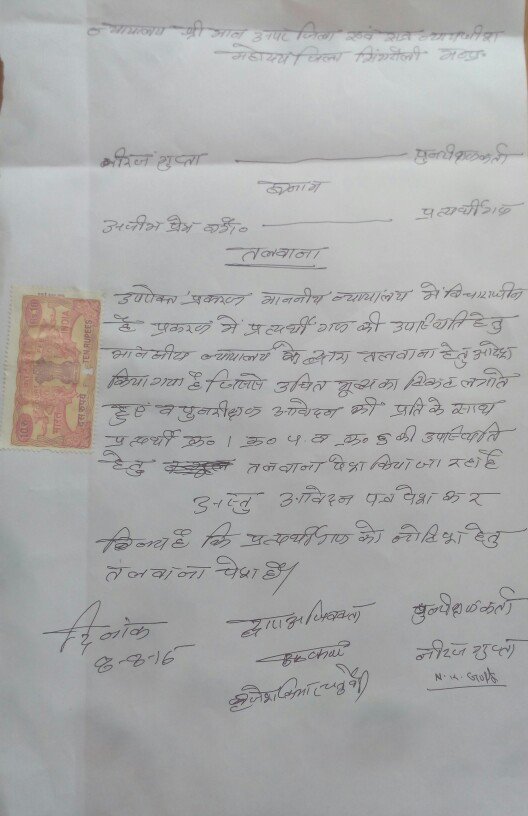 न्यायालय श्री मान अपर जिला एवं सत्र न्यायाधीश
महोदय जिला सिंगरौली म०प्र०
नीरज गुप्ता पुनरीक्षणकर्ता
बनाम
अजीम प्रेम वगै० प्रत्यर्थीगण
तलवाना
उपरोक्त प्रकरण माननीय न्यायालय में विचाराधीन
है प्रकरण में प्रत्यर्थीगण की उपस्थिति हेतु
माननीय न्यायालय के द्वारा तलवाना हेतु आदेश
किया गया है जिससे उचित मूल्य का टिकट लगाते
हुए व पुनरीक्षण आवेदन की प्रति के साथ
प्रत्यर्थी क्र० 1 क्र० 5 व क्र० 6 की उपस्थिति
हेतु तलवाना पेश किया जा रहा है
अस्तु आवेदन पत्र पेश कर
विनय है कि प्रत्यर्थीगण को नोटिश हेतु
तलवाना पेश है।
INDIA
TEN RUPEES
भारत
दस रुपये
दिनांक द्वारा अधिवक्ता पुनरीक्षणकर्ता
8-8-16 नीरज गुप्ता
N. K. Gupta